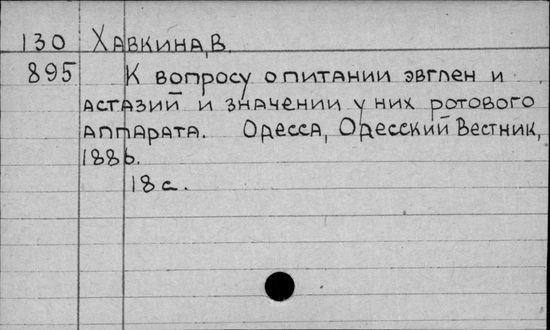 130 Хавкина, В.
895 К вопросу о питании эвглен и
астазий и значении у них ротового
аппарата. Одесса, Одесский Вестник,
1886.
18 с.